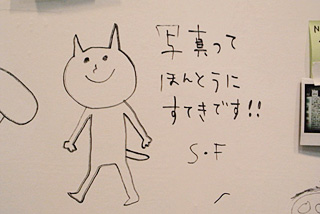 写真って
ほんとうに
すてきです!!
S・F